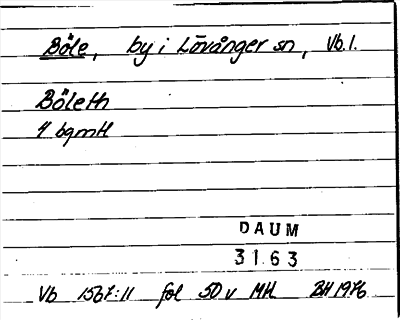 Böle, by i Lövånger sn, Vb. l.
Böleth
4 bgmH
DAUM
3163
Vb 1567:11 fol 50v MH BH 1976